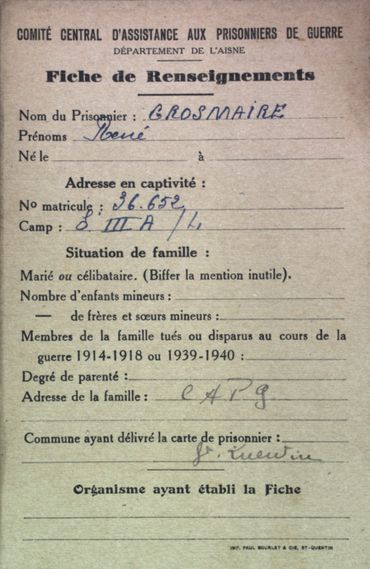 COMITÉ CENTRAL D'ASSISTANCE AUX PRISONNIERS DE GUERRE
DÉPARTEMENT DE L'AISNE
Fiche de Renseignements
Nom du Prisonnier : GROSMAIRE
Prénoms René
Né le à
Adresse en captivité :
No matricule : 36.652
Camp : S. III A / L
Situation de famille :
Marié ou célibataire. (Biffer la mention inutile).
Nombre d'enfants mineurs :
— de frères et sœurs mineurs :
Membres de la famille tués ou disparus au cours de la
guerre 1914-1918 ou 1939-1940 :
Degré de parenté :
Adresse de la famille : CAPG
Commune ayant délivré la carte de prisonnier :
St. Quentin
Organisme ayant établi la Fiche
IMP. PAUL BOURLET & CIE, ST-QUENTIN